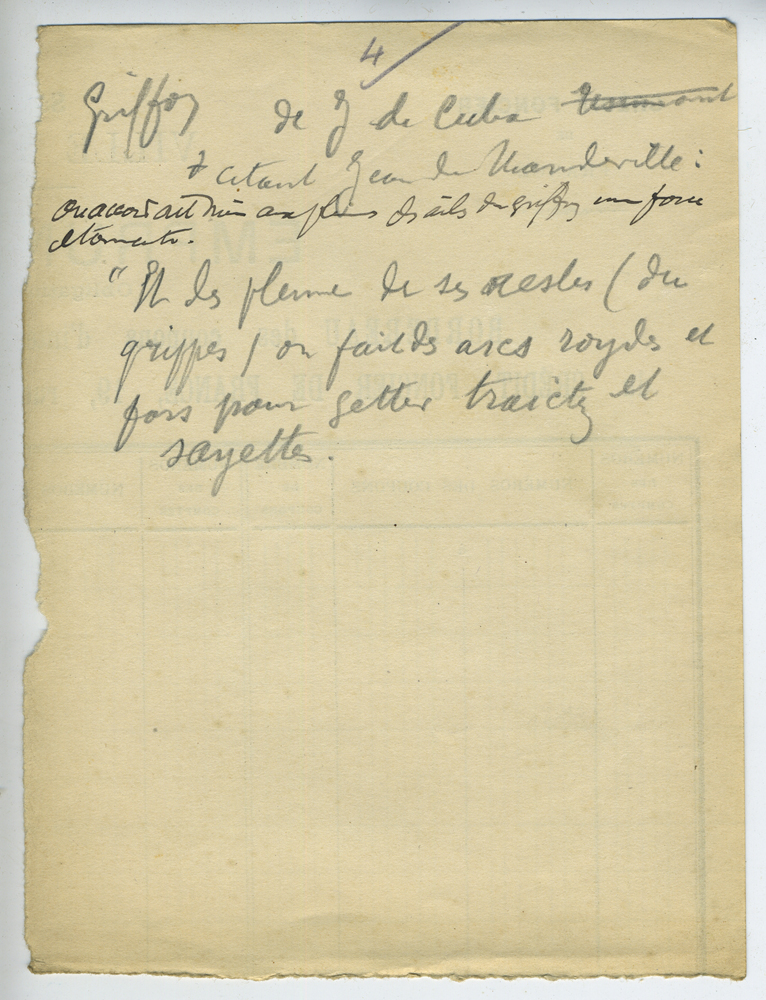 4
Griffon de J de Cuba
+ citant Jean de Mandeville :
on accordait aux plumes des ailes du griffon une force
étonnante.
" Et des plume de ses aesles ( du
grippes ) on fait des arcs roydes et
fors pour getter traictz et
sayettes.